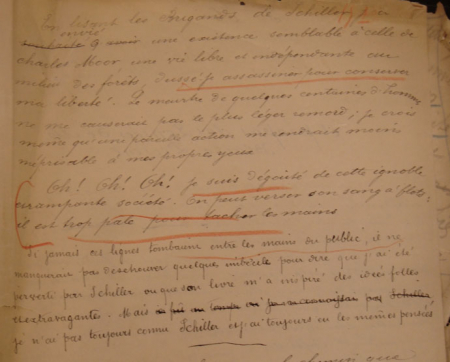 En lisant les Brigands, de Schiller, j'ai
envié une existence semblable à celle de
Charles Moor, une vie libre et indépendante au
milieu des forêts, dussé-je assassiner pour conserver
ma liberté. Le meurtre de quelques centaines d'hommes
ne me causerait pas le plus léger remord; je crois
même qu'une pareille action me rendrait moins
méprisable à mes propres yeux.
Oh! Oh! Oh! je suis dégoûté de cette ignoble
et rampante société. On peut verser son sang à flots,
il est trop pale pour tacher les mains
Si jamais ces lignes tombaient entre les mains du public, il ne
manquerait pas de quelque imbécile pour dire que j'ai été
perverti par Schiller ou que son livre m'a inspiré des idées folles
et extravagantes. Mais
je n'ai pas toujours connu Schiller et j'ai toujours eu les mêmes pensées